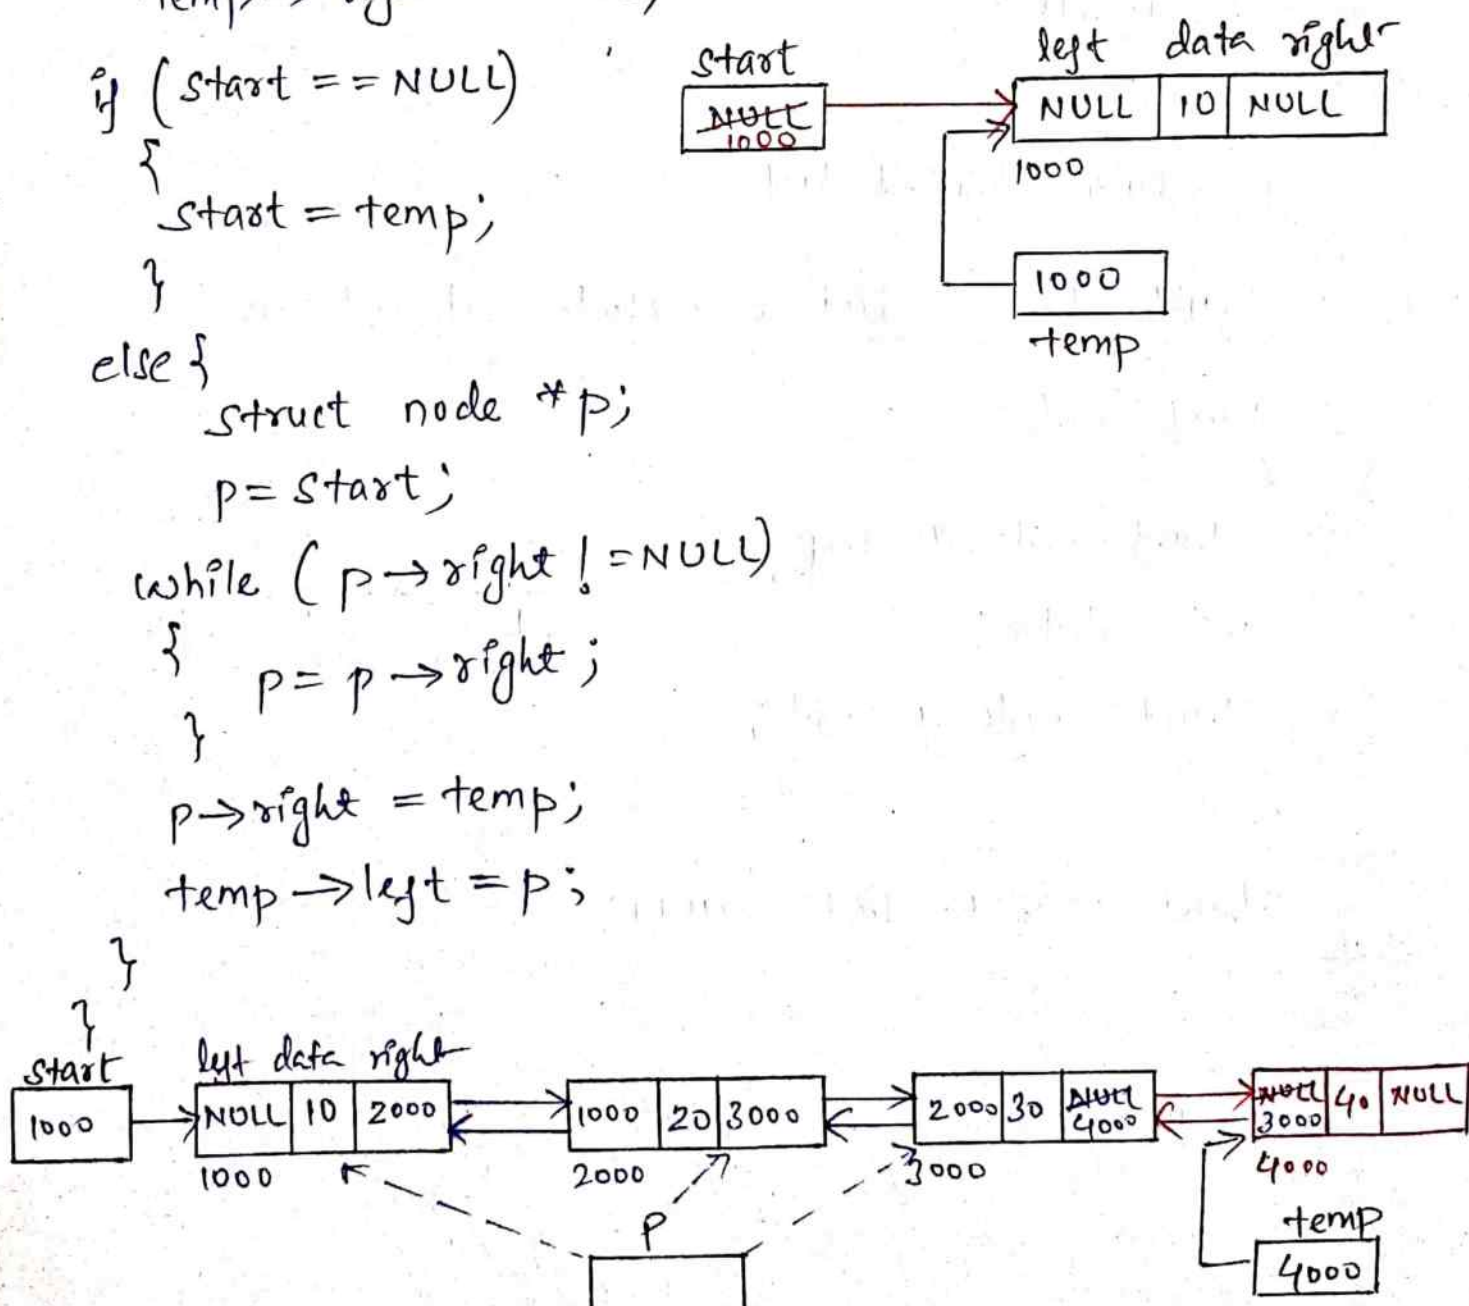 if (start == NULL)
{
start = temp;
}
else {
struct node *p;
p = start;
while (p→right != NULL)
{
p = p→right;
}
p→right = temp;
temp→left = p;
}
}
start
NULL
1000
left data right
NULL 10 NULL
1000
1000
temp
start
1000
left data right
NULL 10 2000
1000
1000 20 3000
2000
2000 30 NULL
4000
3000
NULL 40 NULL
3000
4000
P
temp
4000